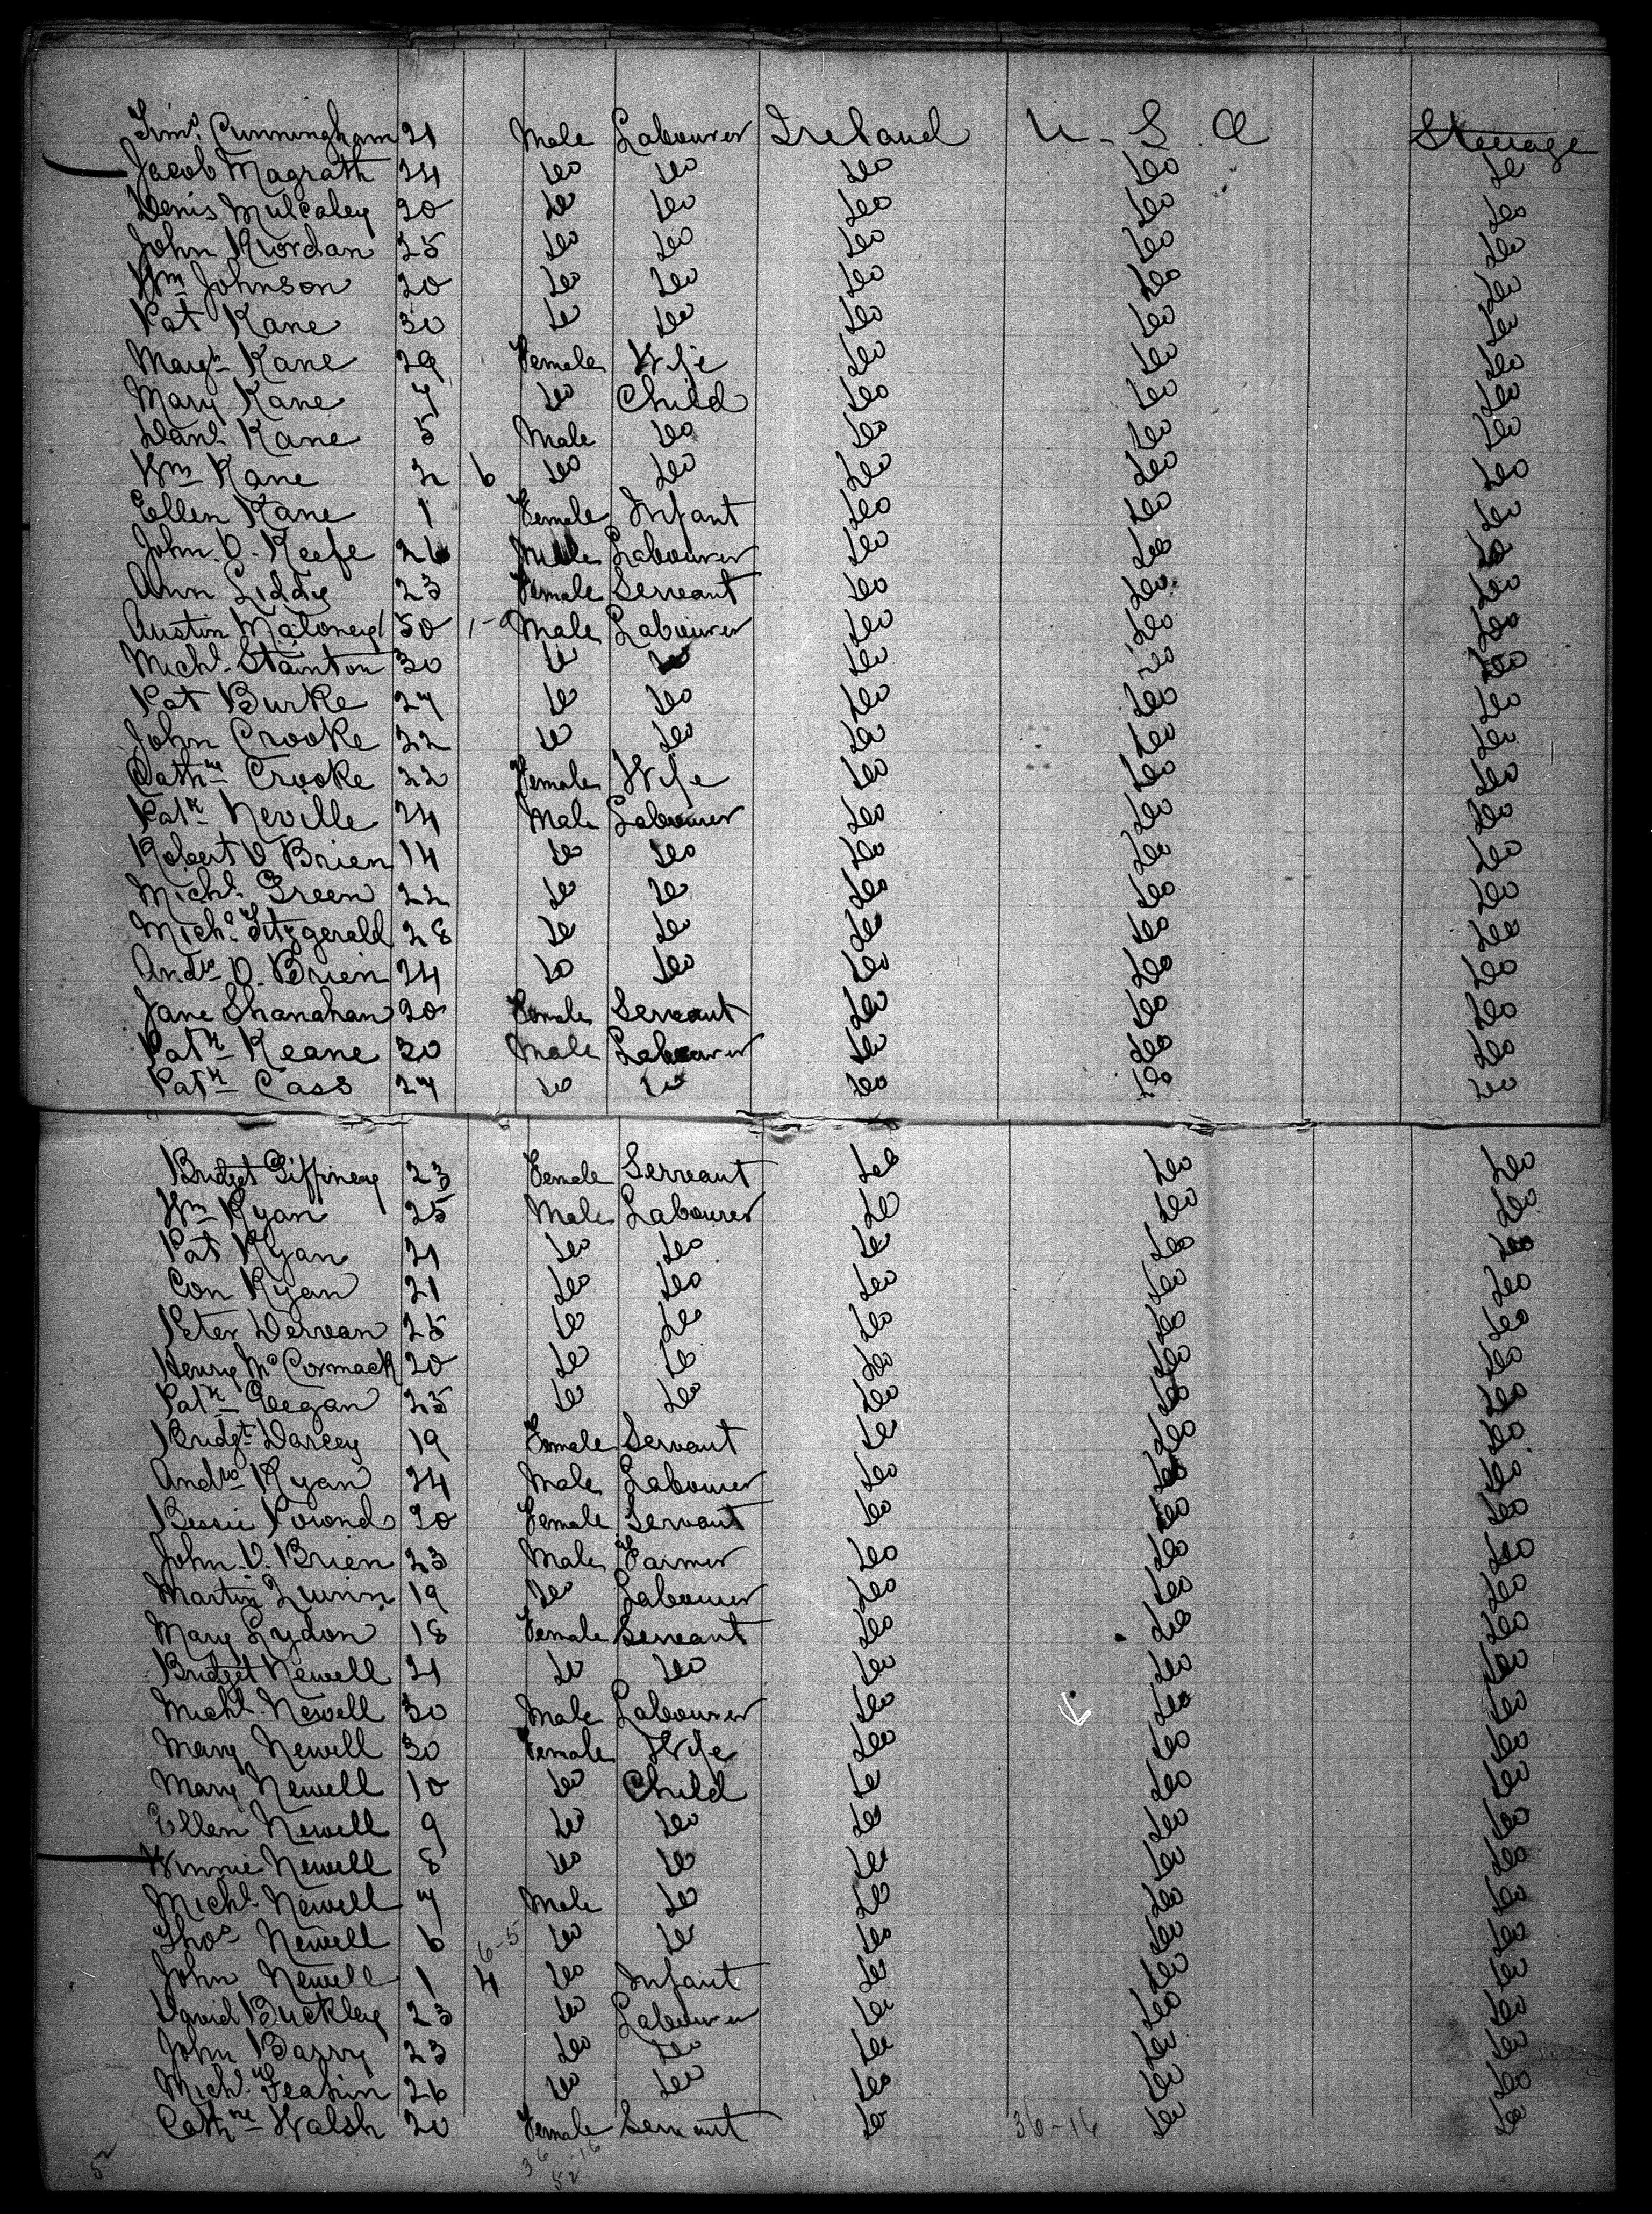 Timo. Cunningham 21 Male Labourer Ireland U.S.A Steerage
Jacob Magrath 24 Do Do Do Do Do
Denis Mulcahey 20 Do Do Do Do Do
John Riordan 25 Do Do Do Do Do
Wm Johnson 20 Do Do Do Do Do
Pat Kane 30 Do Do Do Do Do
Margt Kane 29 Female Wife Do Do Do
Mary Kane 7 Do Child Do Do Do
Danl Kane 5 Male Do Do Do Do
Wm Kane 2 6 Do Do Do Do Do
Ellen Kane 1 Female Infant Do Do Do
John O. Keefe 26 Male Labourer Do Do Do
Ann Liddy 23 Female Servant Do Do Do
Austin Maloney 50 Male Labourer Do Do Do
Michl. Stainton 30 Do Do Do Do Do
Pat Burke 27 Do Do Do Do Do
John Crooke 22 Do Do Do Do Do
Cathne Crooke 22 Female Wife Do Do Do
Patk Neville 24 Male Labourer Do Do Do
Robert O Brien 14 Do Do Do Do Do
Michl. Green 22 Do Do Do Do Do
Michl. Fitzgerald 28 Do Do Do Do Do
Andw O. Brien 24 Do Do Do Do Do
Jane Shanahan 20 Female Servant Do Do Do
Patk Keane 30 Male Labourer Do Do Do
Patk Cass 27 Do Do Do Do Do
Bridget Giffiney 23 Female Servant Do Do Do
Wm Ryan 25 Male Labourer Do Do Do
Pat Ryan 21 Do Do Do Do Do
Con Ryan 21 Do Do Do Do Do
Peter Dervan 25 Do Do Do Do Do
Henry McCormack 20 Do Do Do Do Do
Patk Geegan 25 Do Do Do Do Do
Bridgt Darcey 19 Female Servant Do Do Do
Andw Ryan 24 Male Labourer Do Do Do
Bessie Pound 20 Female Servant Do Do Do
John O. Brien 23 Male Farmer Do Do Do
Martin Quinn 19 Do Labourer Do Do Do
Mary Lydon 18 Female Servant Do Do Do
Bridget Newell 21 Do Do Do Do Do
Michl. Newell 30 Male Labourer Do Do Do
Mary Newell 30 Female Wife Do Do Do
Mary Newell 10 Do Child Do Do Do
Ellen Newell 9 Do Do Do Do Do
Winnie Newell 8 Do Do Do Do Do
Michl. Newell 7 Male Do Do Do Do
Thos Newell 6 6-5 Do Do Do Do Do
John Newell 1 4 Do Infant Do Do Do
David Buckley 23 Do Labourer Do Do Do
John Barry 23 Do Do Do Do Do
Michl. Feahin 26 Do Do Do Do Do
Cathne Walsh 20 Female Servant Do 36-16 Do Do
36 16
52
52